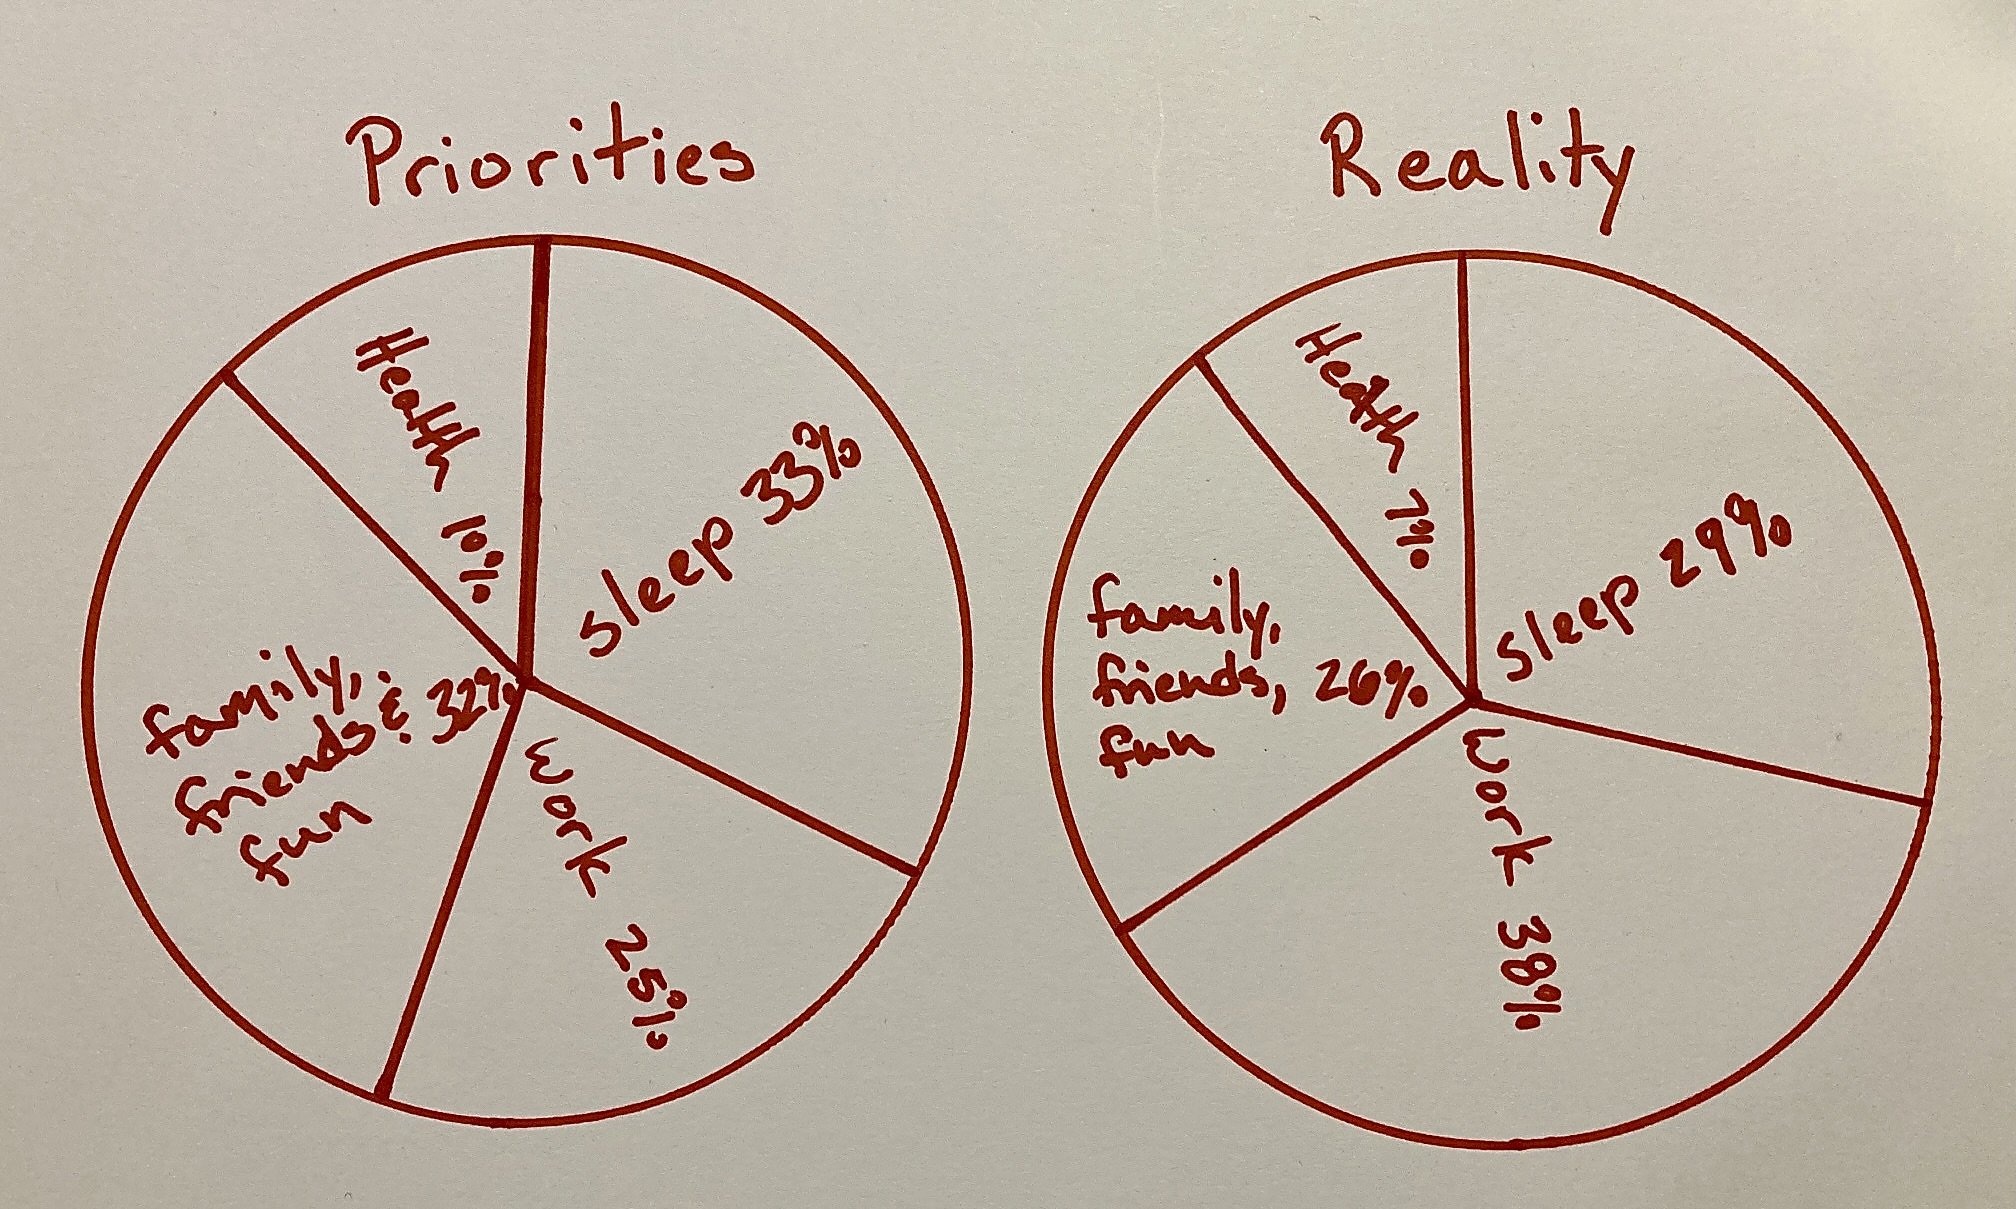 Priorities
Health 10%
Sleep 33%
family,
friends & 32%
fun
Work 25%
Reality
Health 7%
Sleep 29%
family,
friends, 26%
fun
Work 38%